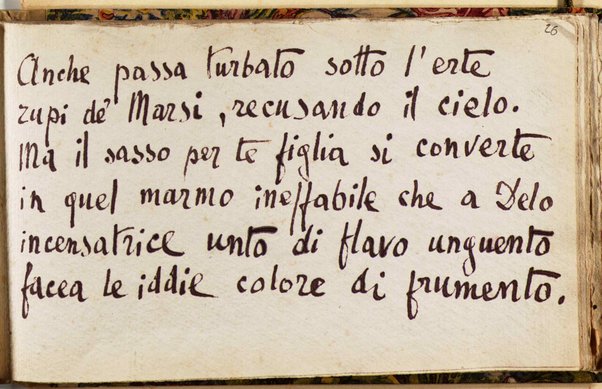 26
Anche passa turbato sotto l'erte
rupi de' Marsi, recusando il cielo.
Ma il sasso per te figlia si converte
in quel marmo ineffabile che a Delo
incensatrice unto di flavo unguento
facea le iddie colore di frumento.